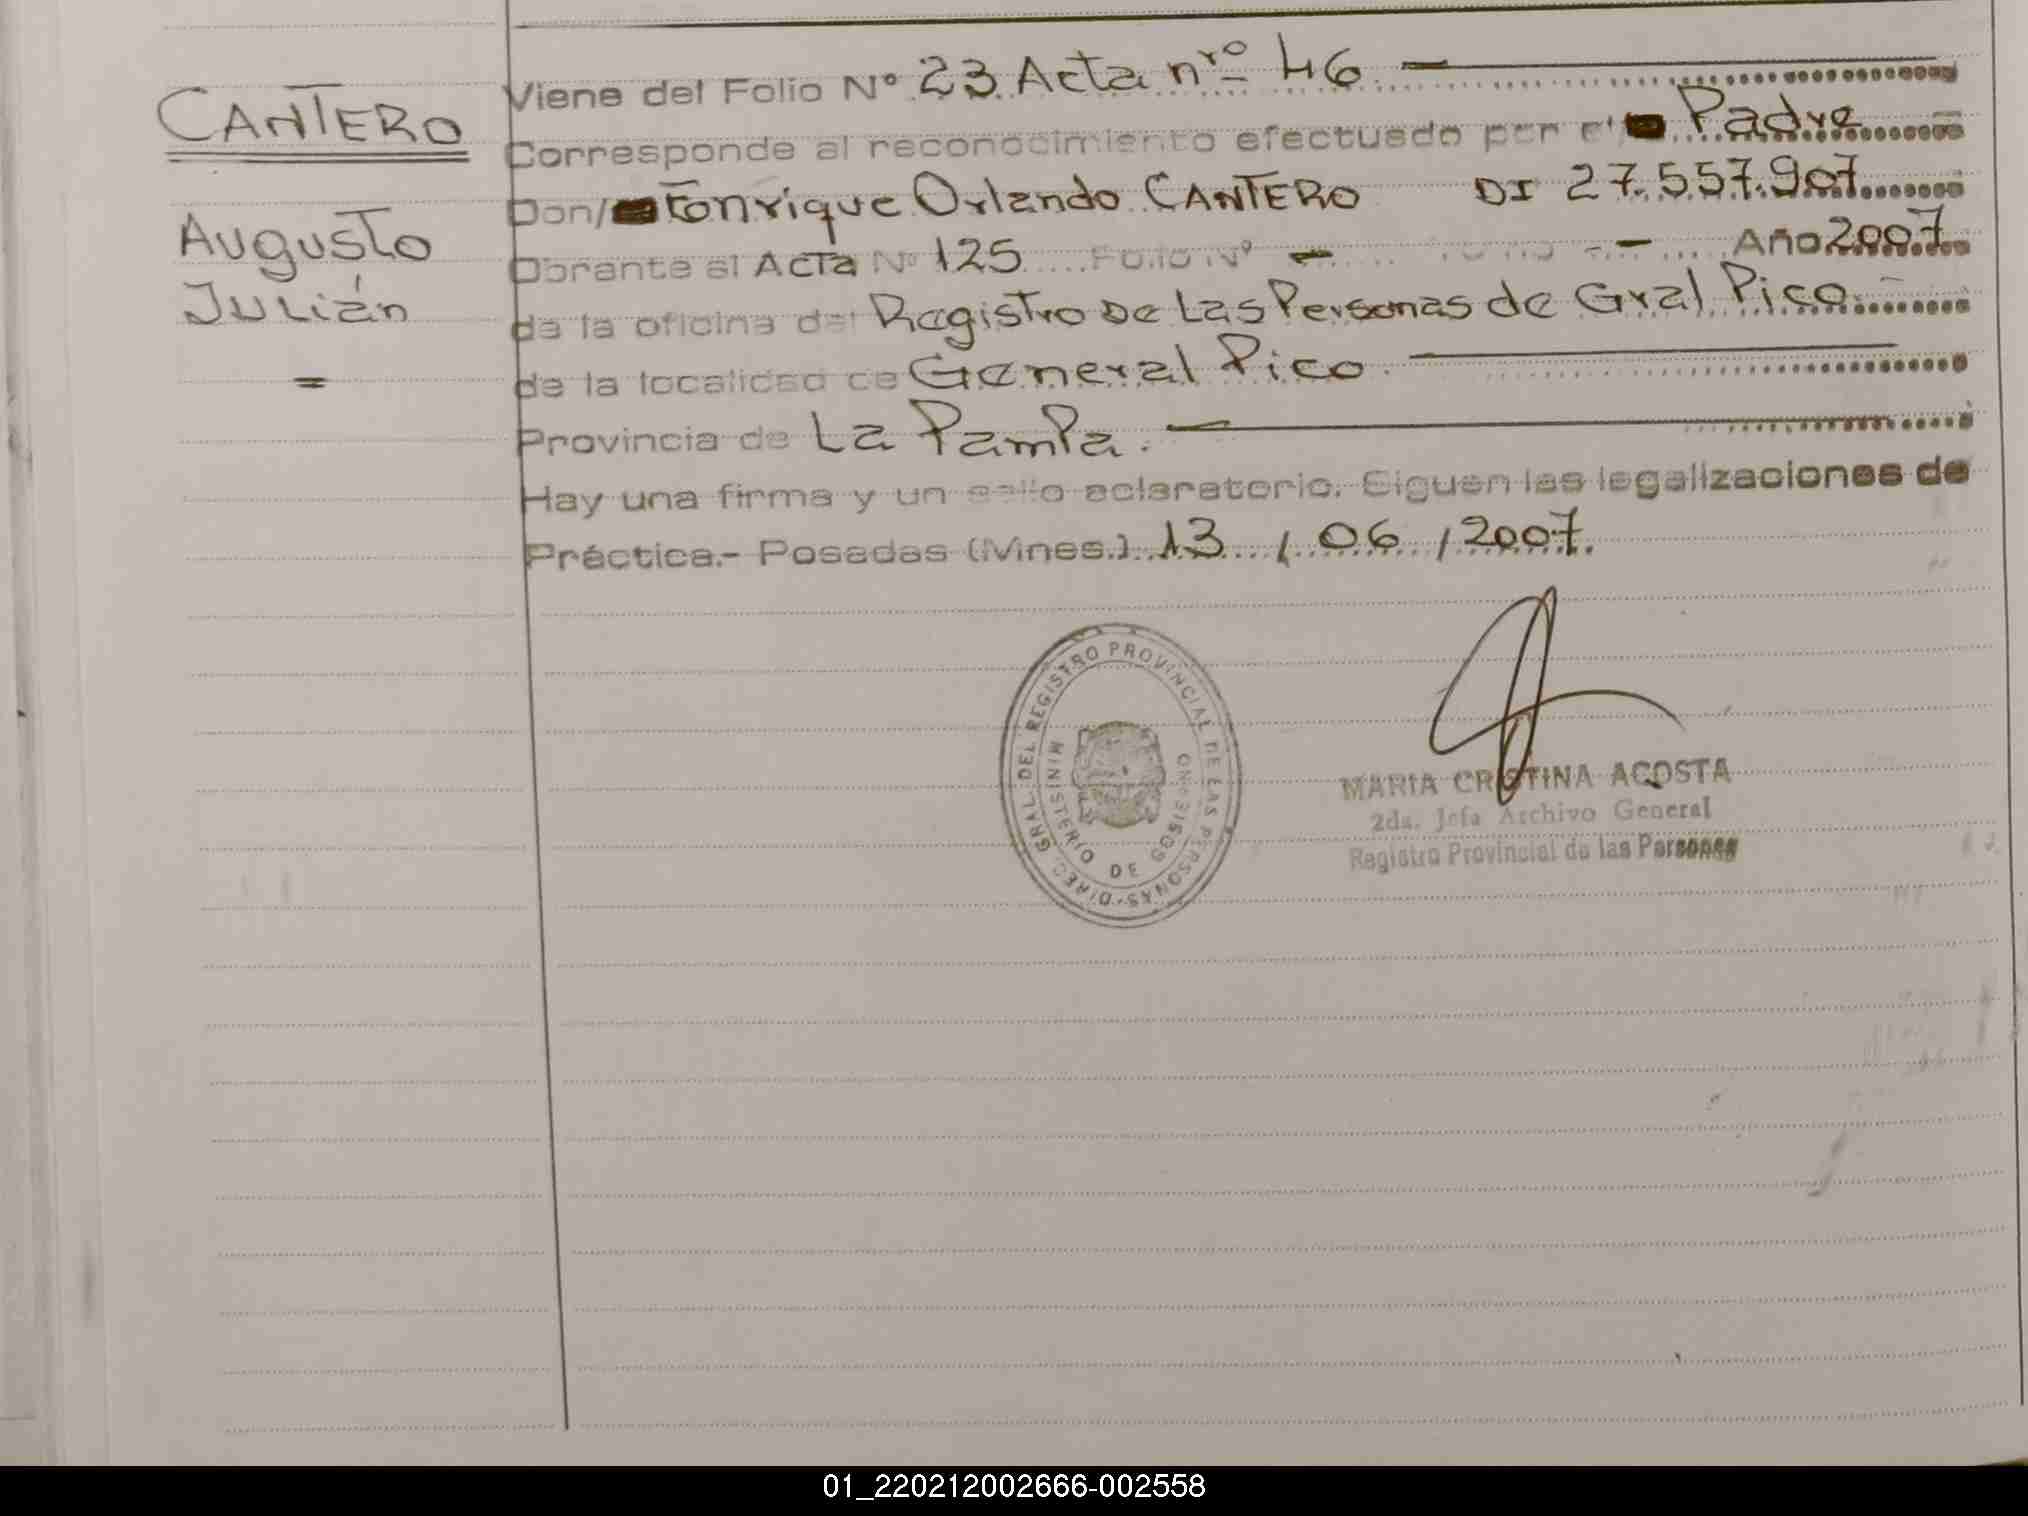 CANTERO
Augusto
Julián
=
Viene del Folio Nº 23 Acta nrº 46.
Corresponde al reconocimiento efectuado por el Padre
Don/ Enrique Orlando CANTERO DI 27.557.907
Obrante al Acta Nº 125 Folio Nº — — Año 2007
de la oficina del Registro De Las Personas de Gral Pico.
de la localidad de General Pico.
Provincia de La Pampa.
Hay una firma y un sello aclaratorio. Siguen las legalizaciones de
Práctica.- Posadas (Mnes.) 13 / 06 / 2007.
DIREC. GRAL. DEL REGISTRO PROVINCIAL DE LAS PERSONAS
MINISTERIO DE GOBIERNO
MARIA CRISTINA ACOSTA
2da. Jefa Archivo General
Registro Provincial de las Personas
01_220212002666-002558